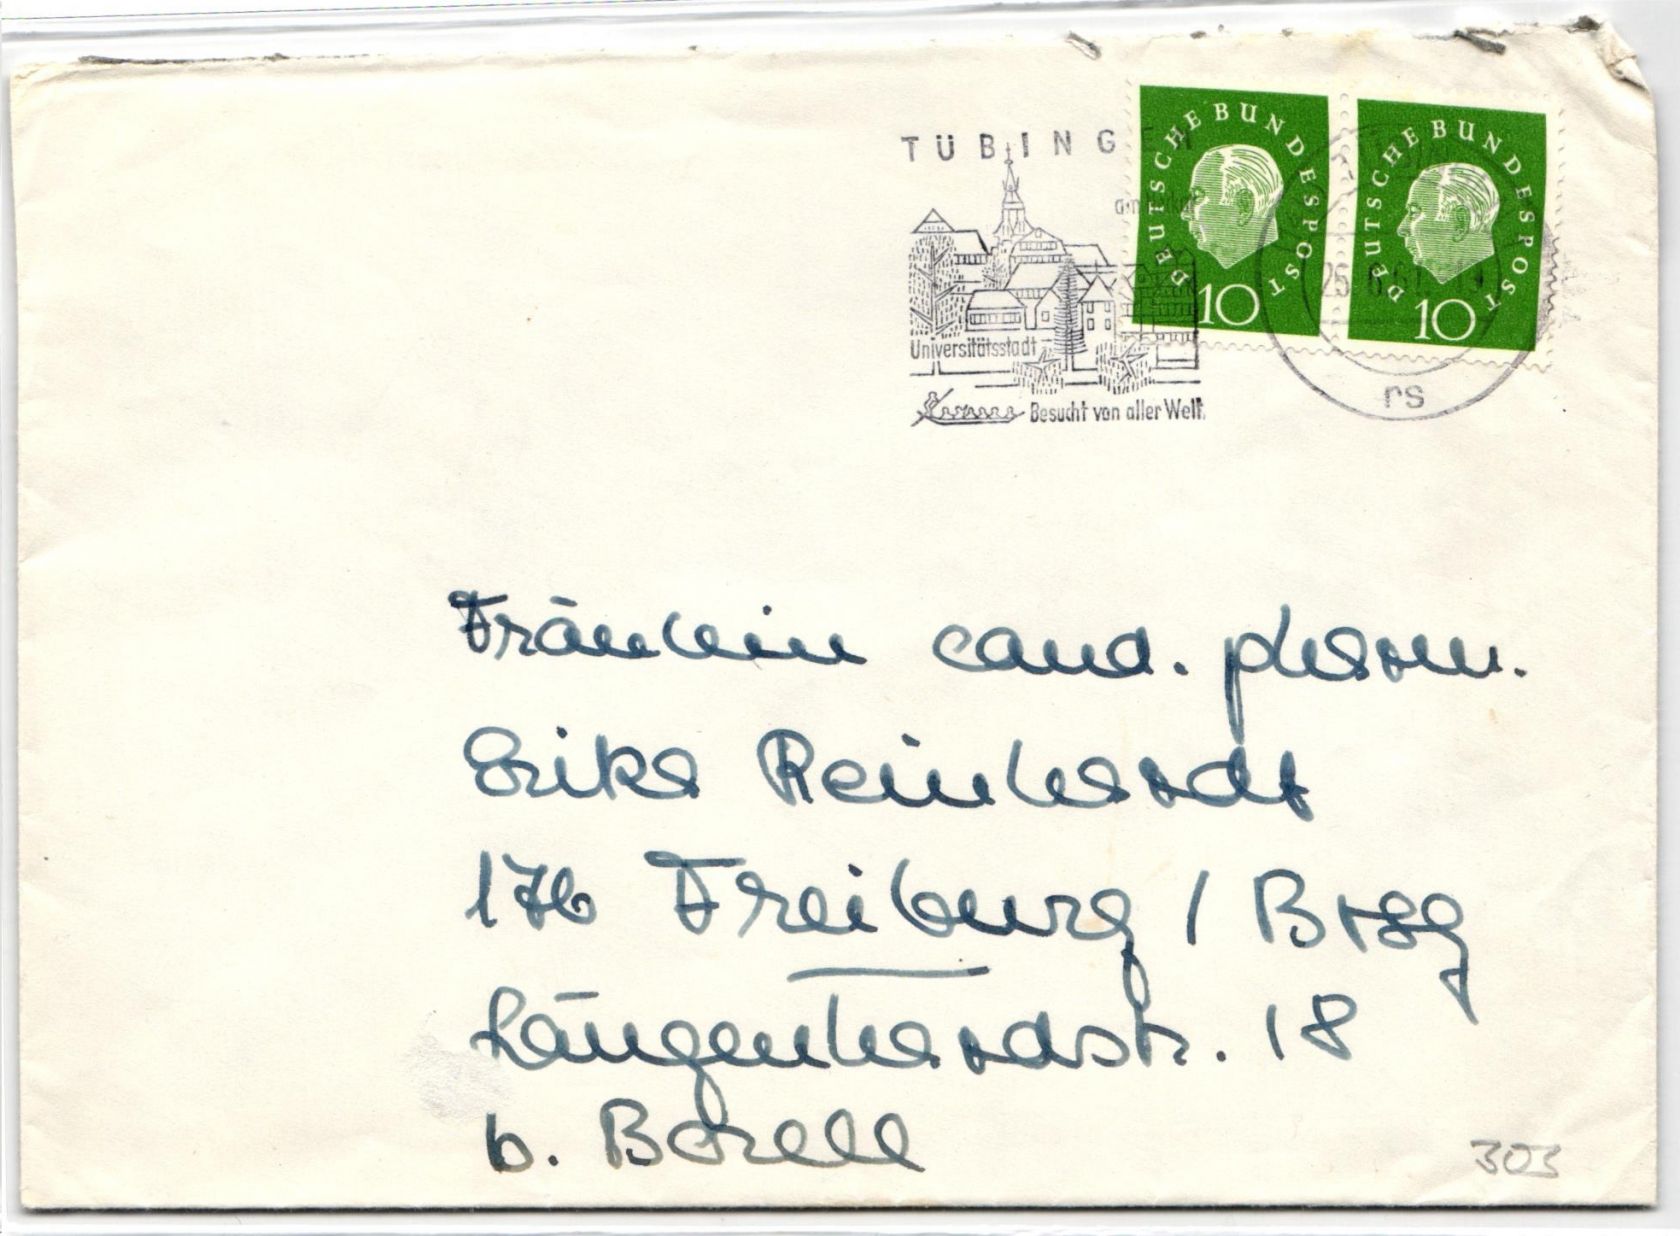 TÜBINGEN
Universitätsstadt
Besucht von aller Welt.
DEUTSCHE BUNDESPOST
10
DEUTSCHE BUNDESPOST
10
26.6.61.-19
rs
Fräulein cand. pharm.
Erika Reinhardt
17b Freiburg / Brsg
Längenhardstr. 18
b. Borell
303